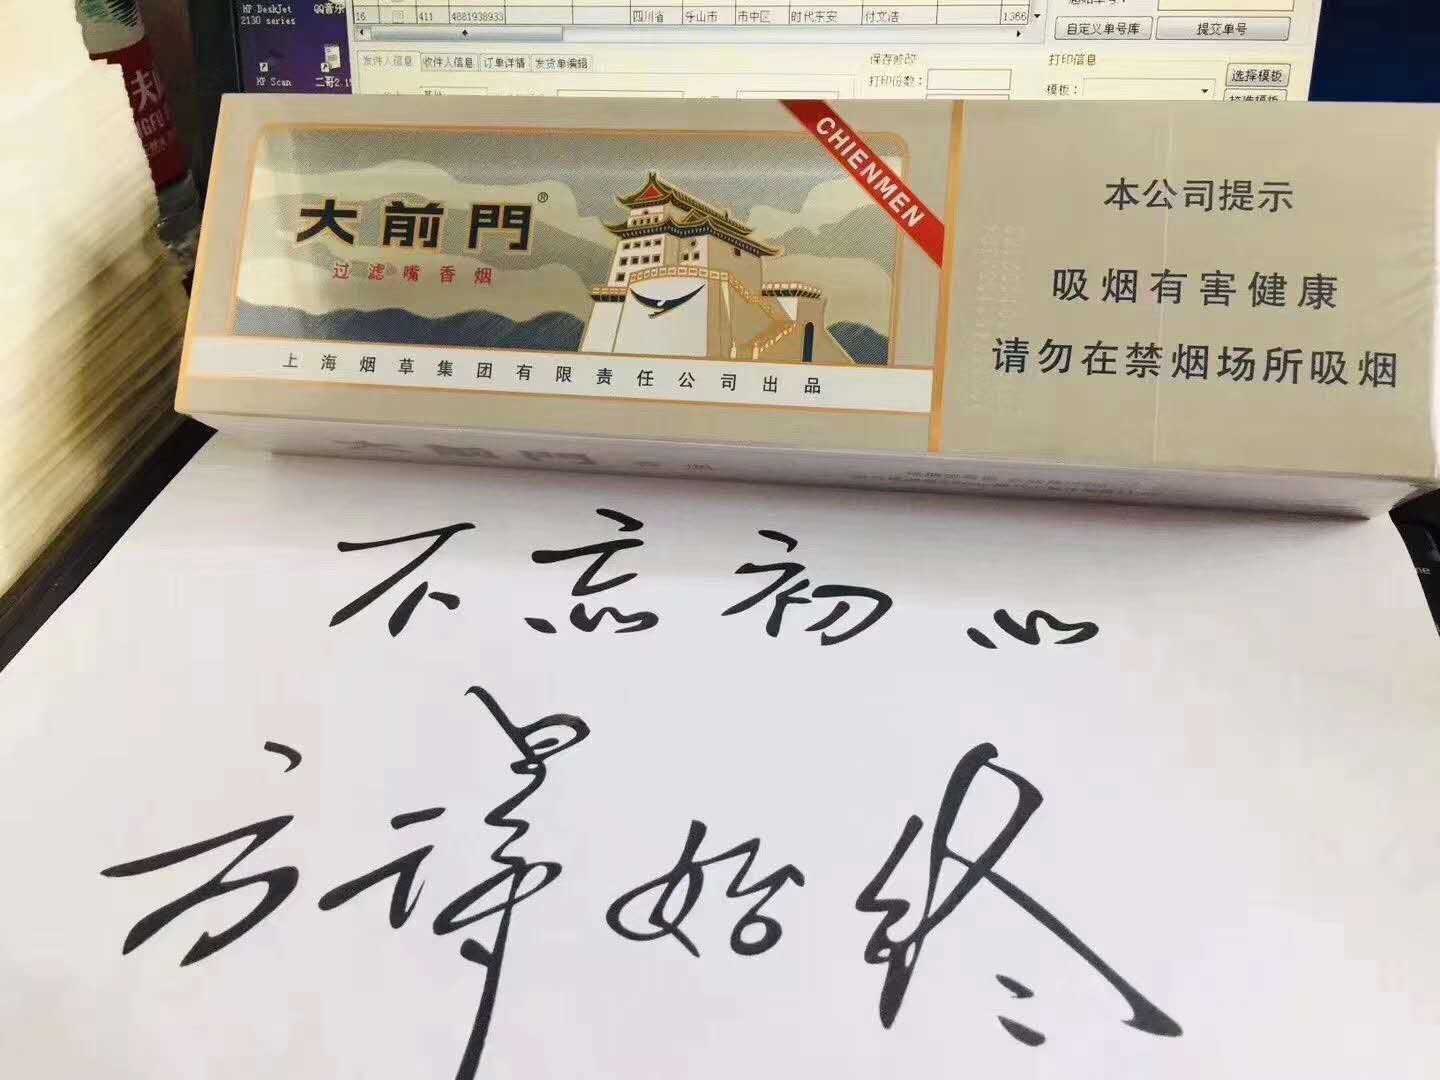 HP DeskJet
2130 series
QQ音乐
HP Scan
二哥2.1
16 411 4881938933 四川省 乐山市 市中区 时代东安 付文浩 1366
自定义单号库 提交单号
发件人信息 收件人信息 订单详情 发货单编辑
保存修改
打印份数：
打印信息
模板：
选择模板
大前門®
过滤嘴香烟
CHIENMEN
上海烟草集团有限责任公司出品
本公司提示
吸烟有害健康
请勿在禁烟场所吸烟
大前門
不忘初心
方得始终